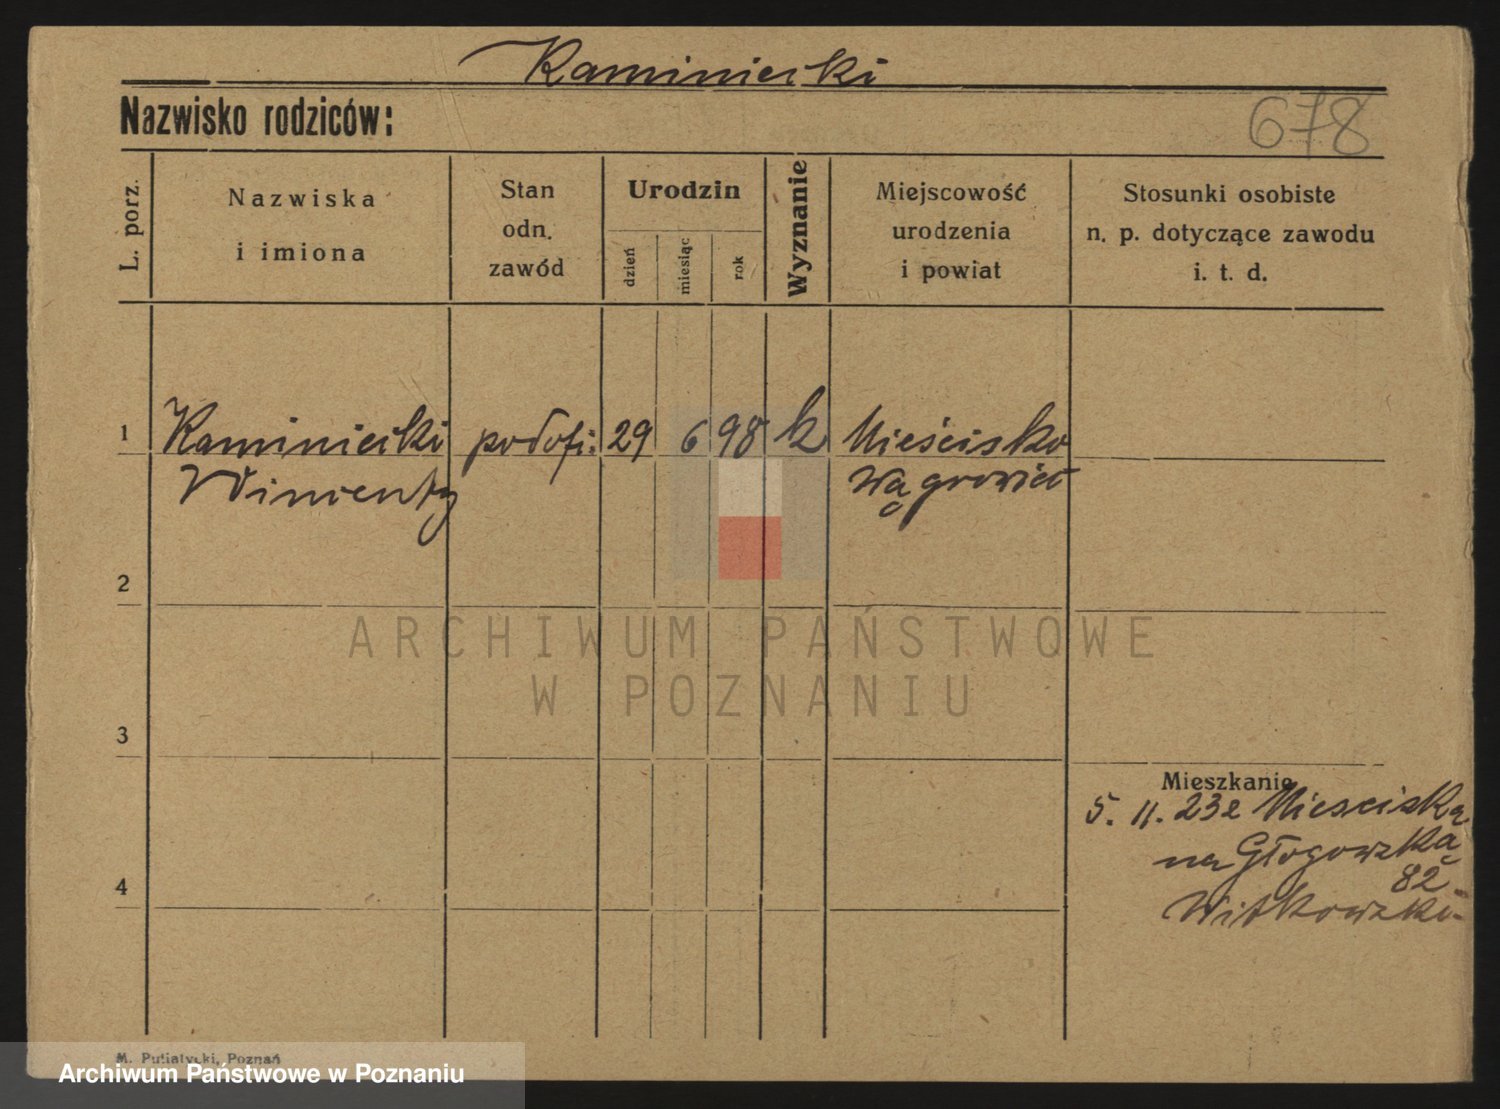 Kaminiecki
Nazwisko rodziców:
678
L. porz.
Nazwiska
i imiona
Stan
odn.
zawód
Urodzin
dzień
miesiąc
rok
Wyznanie
Miejscowość
urodzenia
i powiat
Stosunki osobiste
n. p. dotyczące zawodu
i. t. d.
1
Kaminiecki podofi: 29 6 98 k Mieścisko
Wągrowiec
2
3
4
Mieszkanie
5. 11. 23 z Miesciska
na Głogowską
82
Witkowski
ARCHIWUM PAŃSTWOWE
W POZNANIU
M. Putiatycki, Poznań
Archiwum Państwowe w Poznaniu